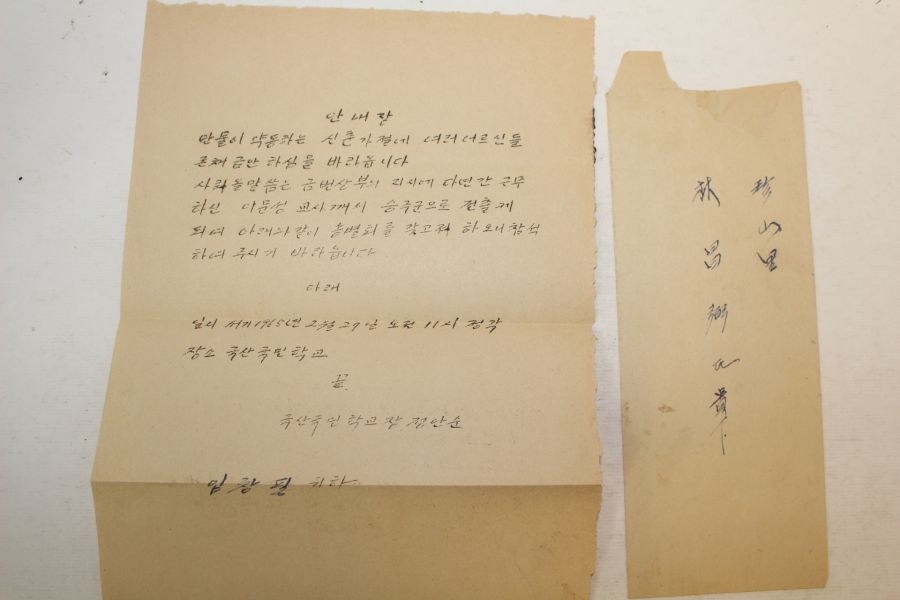 안내장
만물이 약동하는 신춘가절에 여러 어르신들
존체 금안하심을 바라옵니다
사뢰올 말씀는 금번 상부의 지시에 다년간 근무
하신 이문성 교사께서 승주군으로 전출케
되여 아래와 같이 송별회를 갖고저 하오니 참석
하여 주시기 바라옵니다
아래
일시 서기 1965년 2월 27일 오전 11시 정각
장소 죽산국민학교
끝
죽산국민학교장 정안순
임창필 귀하
珍山里
林昌弼氏 貴下